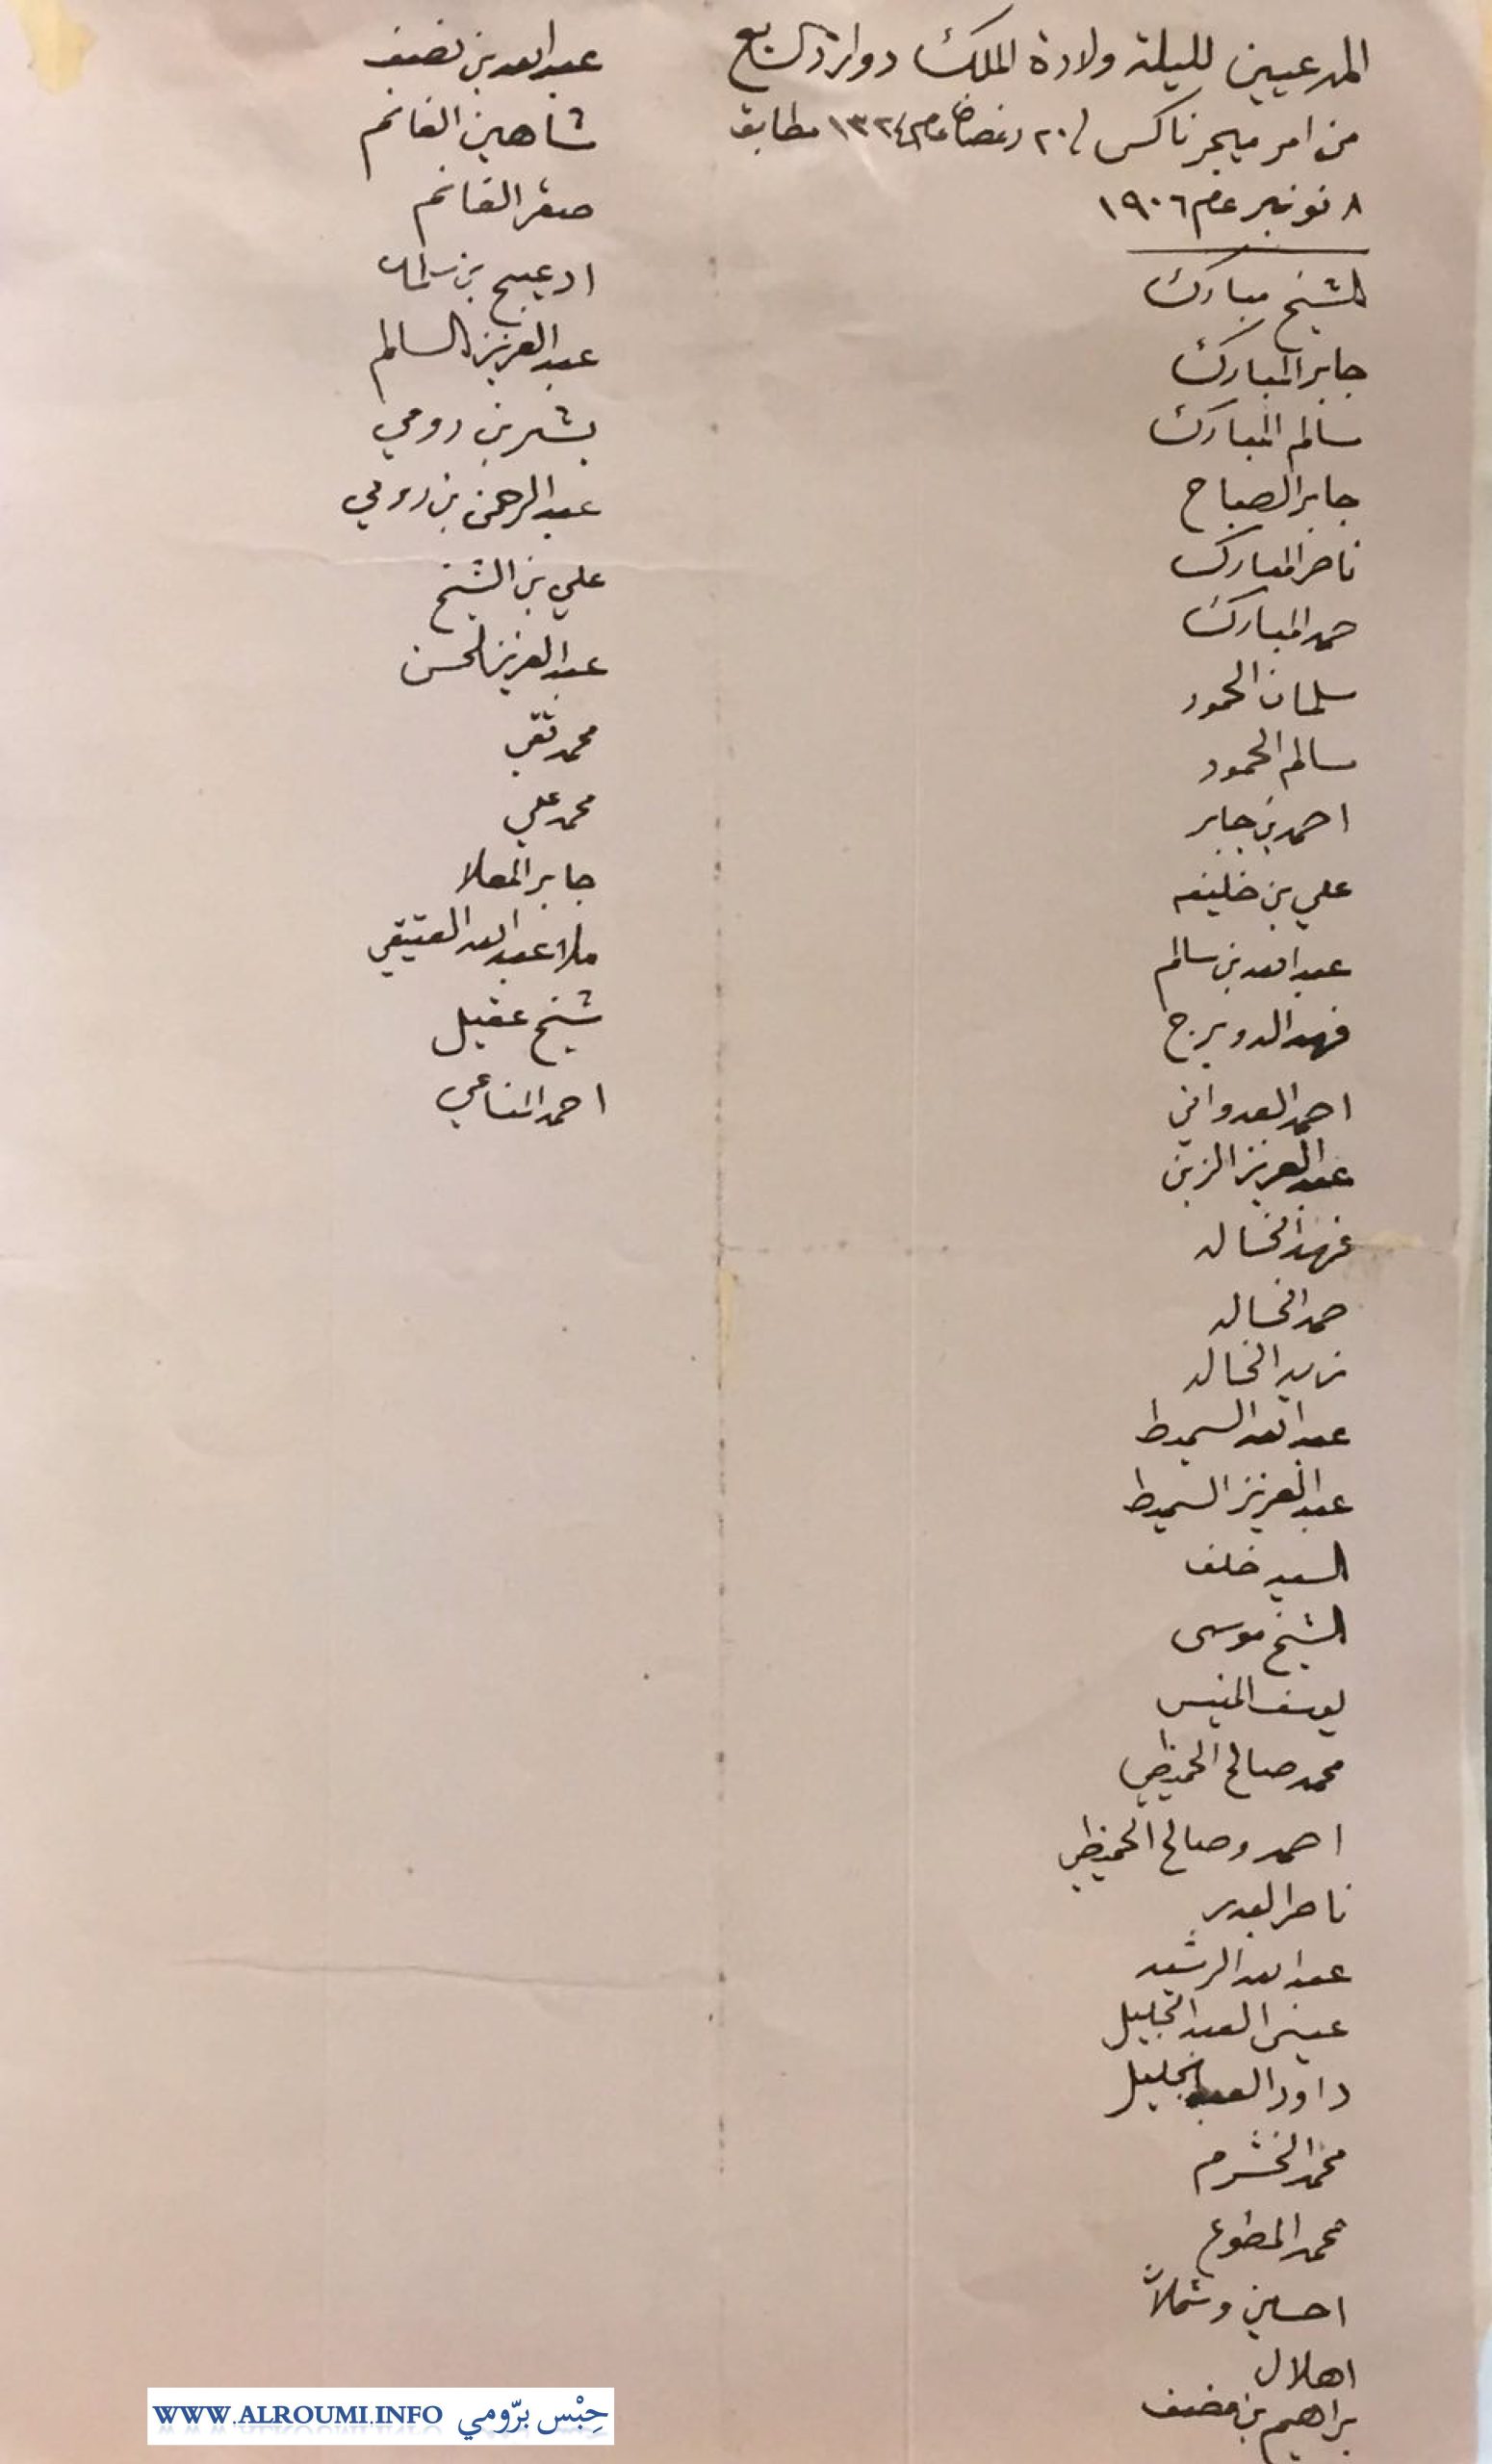 المدعيين لليلة ولادة الملك دوارد السابع
من امر ميجر ناكس في ٢٠ رمضان عام ١٣٢٤ مطابق
٨ نونبر عام ١٩٠٦
الشيخ مبارك
جابر المبارك
سالم المبارك
جابر الصباح
ناصر المبارك
حمد المبارك
سلمان الحمود
سالم الحمود
احمد بن جابر
علي بن خليفه
عبدالله بن سالم
فهد الدويرج
احمد العدواني
عبدالعزيز الزبن
فهد الخالد
حمد الخالد
زيد الخالد
عبدالله السميط
عبدالعزيز السميط
السيد خلف
الشيخ موسى
يوسف المنيس
محمد صالح الحميظي
احمد وصالح الحميظي
ناصر البدر
عبدالله الرشيد
عيسى العبدالجليل
داود العبدالجليل
محمد الخشرم
محمد المطوع
احسين وشملان
اهلال
براهيم بن مضف
عبدالله بن نصيف
شاهين الغانم
صقر الغانم
ادعيج بن سلمان
عبدالعزيز السالم
بشر بن رومي
عبدالرحمن بن رومي
علي بن الشيخ
عبدالعزيز لحسن
محمد تقي
محمد علي
جابر المعلا
ملا عبدالله العتيقي
شيخ عقيل
احمد المناعي
WWW.ALROUMI.INFO حِبْس برّومي